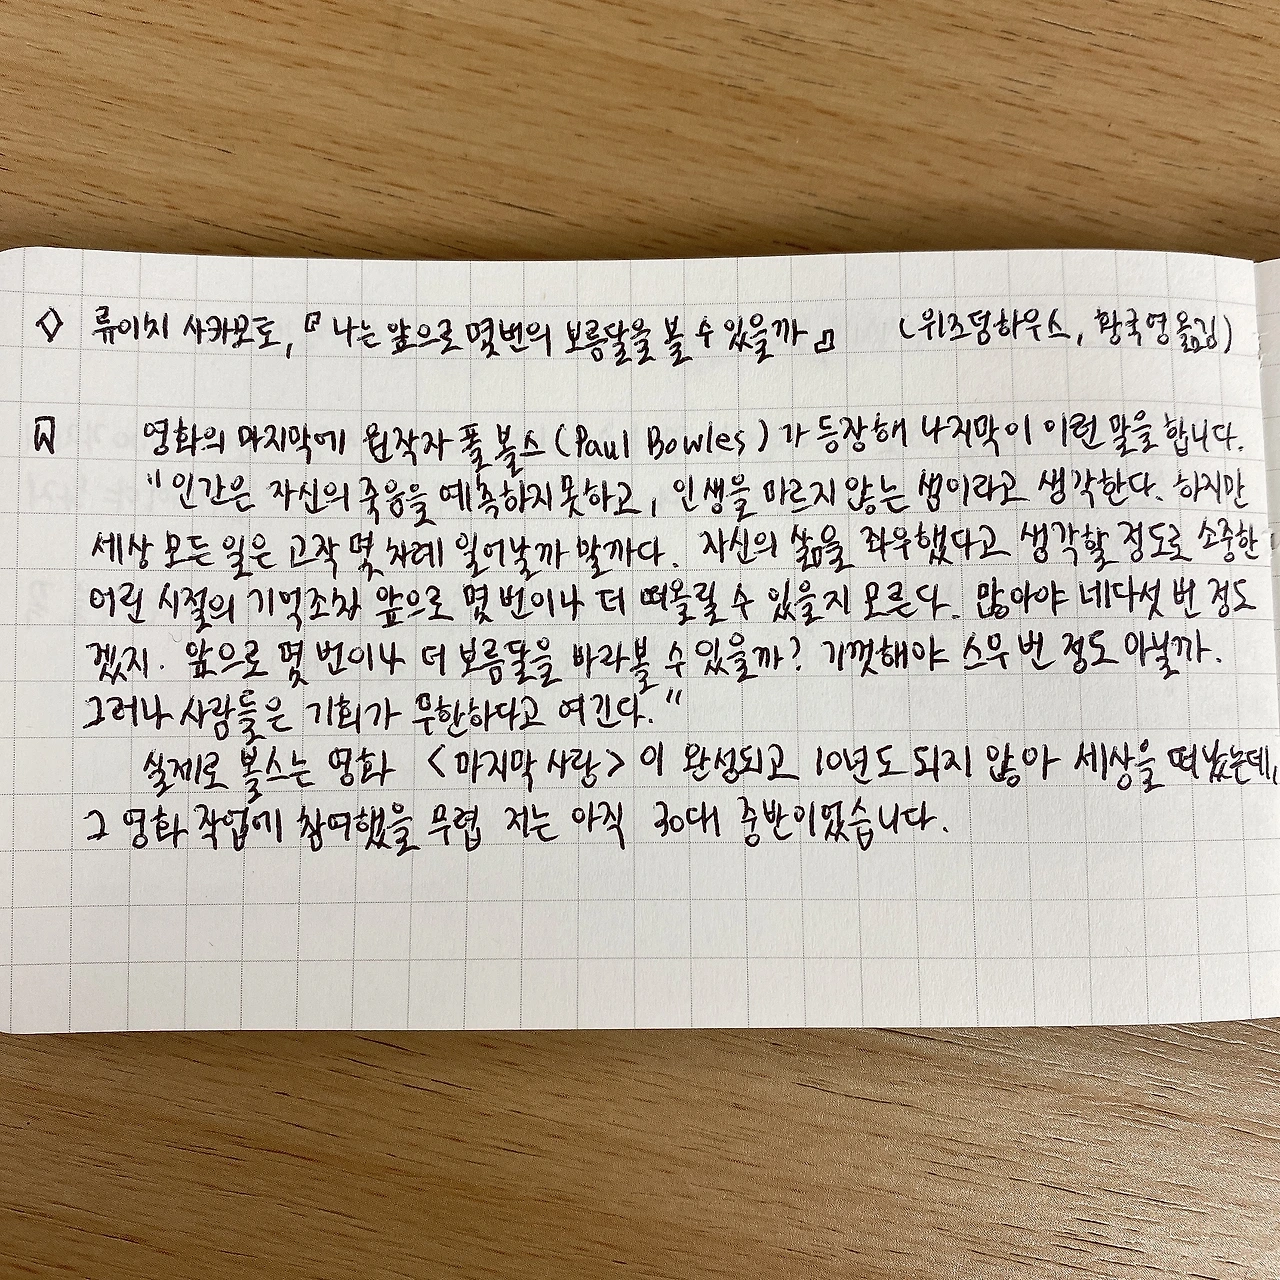 ◇ 류이치 사카모토, 『나는 앞으로 몇번의 보름달을 볼 수 있을까』 (위즈덩하우스, 황국영 옮김)
영화의 마지막에 원작자 폴 볼스(Paul Bowles)가 등장해 나지막이 이런 말을 합니다.
"인간은 자신의 죽음을 예측하지 못하고, 인생을 마르지 않는 샘이라고 생각한다. 하지만
세상 모든 일은 고작 몇 차례 일어날까 말까다. 자신의 삶을 좌우했다고 생각할 정도로 소중한
어린 시절의 기억조차 앞으로 몇 번이나 더 떠올릴 수 있을지 모른다. 많아야 네다섯 번 정도
겠지. 앞으로 몇 번이나 더 보름달을 바라볼 수 있을까? 기껏해야 스무 번 정도 아닐까.
그러나 사람들은 기회가 무한하다고 여긴다."
실제로 볼스는 영화 <마지막 사랑>이 완성되고 10년도 되지 않아 세상을 떠났는데,
그 영화 작업에 참여했을 무렵 저는 아직 30대 중반이었습니다.